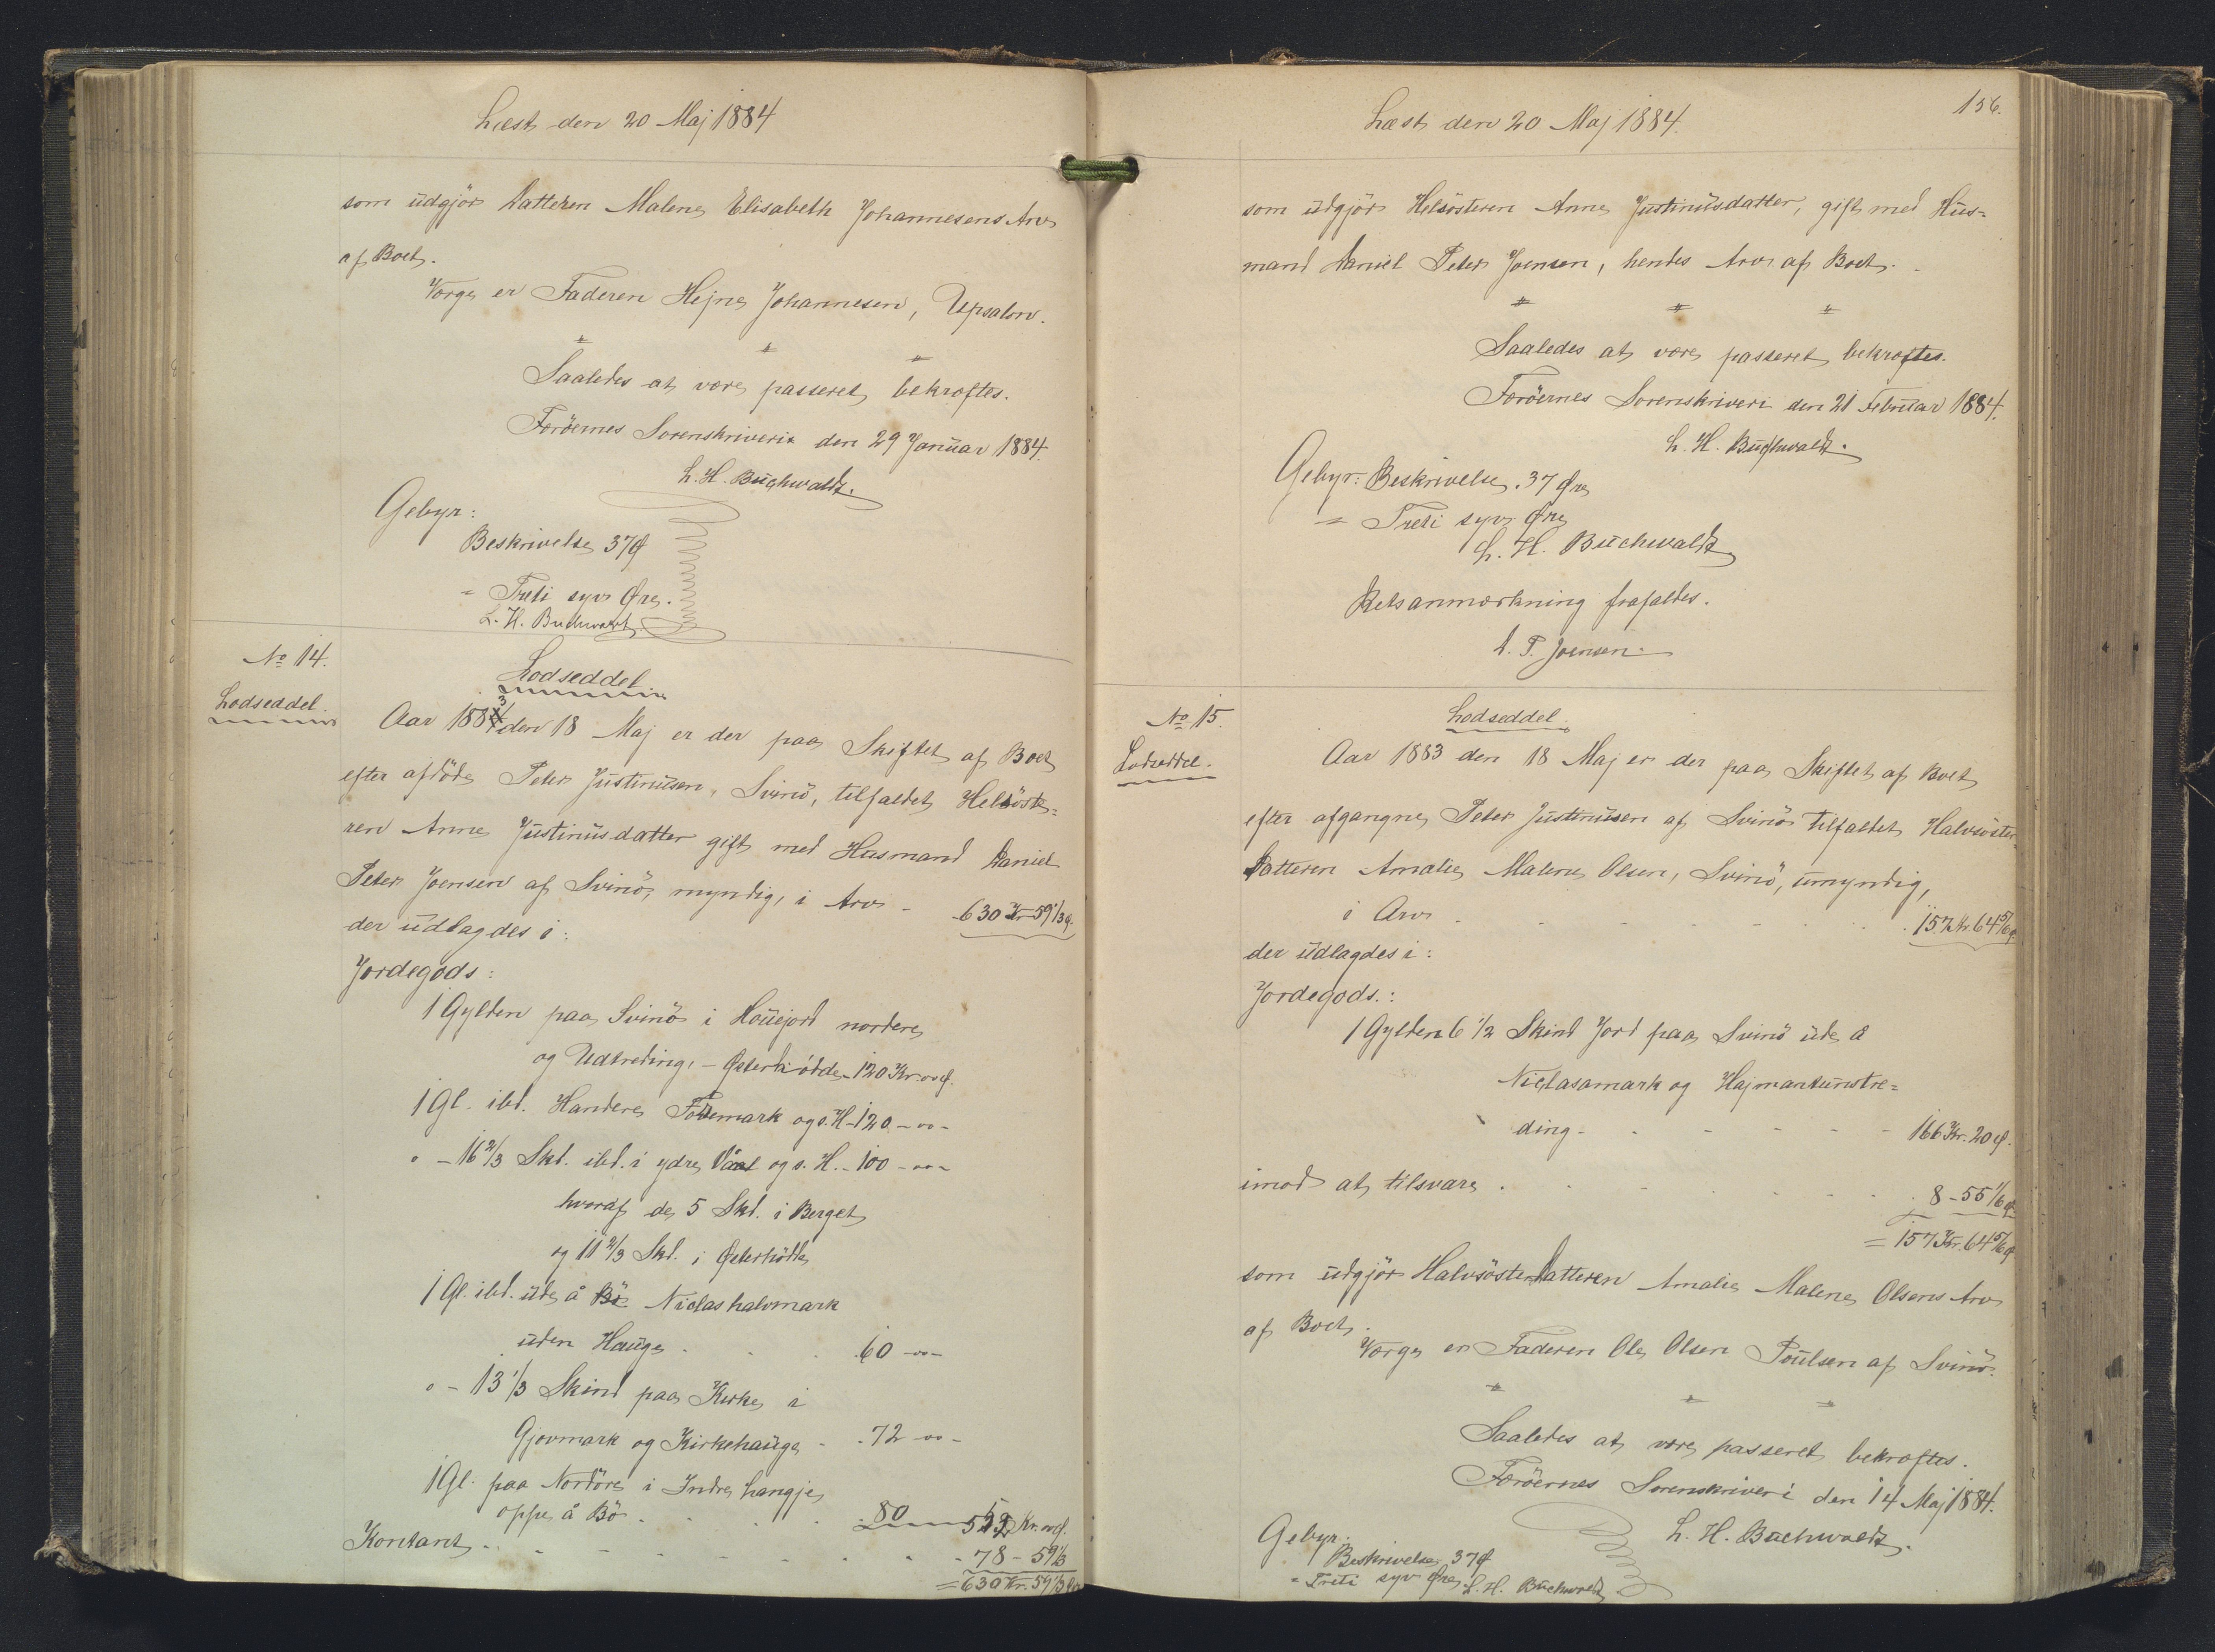 Læst den 20 Maj 1884
som udgjör Datteren Malene Elisabeth Johannesens Arv
af Boet.
Værge er Faderen Hejne Johannesen, Upsalon.
" " "
Saaledes at være passeret bekræftes.
Færöernes Sorenskriveri den 29 Januar 1884.
L. H. Buchwaldt.
Gebyr:
Beskrivelse 37 Ø
= Treti syv Øre.
L. H. Buchwaldt
No 14.
Lodseddel.
Lodseddel
Aar 1883 den 18 Maj er der paa Skiftet af Boet
efter afdöde Peter Justinusen, Svinö, tilfaldet Helsöste=
ren Anne Justinusdatter gift med Husmand Daniel
Peter Joensen af Svinö, myndig, i Arv - 630 Kr 59 1/3 Ø.
der udlagdes i:
Jordegods:
1 Gylden paa Svinö i Houejord nordere
og Udtreding, - Østerhödde - 120 Kr. oo Ø.
1 Gl. ibd. Handere Fossemark og s. H - 120 - oo -
o - 16 2/3 Skd. ibd. i ydre og s. H. - 100 - oo -
hvoraf de 5 Skd. i Berget
og 11 2/3 Skd. i Østerhödde
1 Gl. ibd. ude å Bö Niclashalvmark
uden Hauge . . . 60 - oo -
o - 13 1/3 Skind paa Kirke i
Gjovmark og Kirkehauge - - 72 - oo -
1 Gl. paa Nordöre i Indre hangje
oppe å Bö . . . . . 80 552 Kr. oo Ø.
Kontant - - - - - - 78 - 59 1/3
= 630 Kr. 59 1/3 Ø
Læst den 20 Maj 1884.
156.
som udgjör Helsösteren Anne Justinusdatter, gift med Hus=
mand Daniel Peter Joensen, hendes Arv af Boet.
" " "
Saaledes at være passeret bekræftes.
Færöernes Sorenskriveri den 21 Februar 1884.
L. H. Buchwaldt.
Gebyr: Beskrivelse. 37 Øre
= Treti syv Øre
L. H. Buchwaldt
Retsanmærkning frafaldes.
D. P. Joensen.
No 15.
Lodseddel.
Lodseddel.
Aar 1883 den 18 Maj er der paa Skiftet af Boet
efter afgangne Peter Justinusen af Svinö tilfaldet Halvsöster=
Datteren Amalie Malene Olsen, Svinö, umyndig,
i Arv . - - - - - - 157 Kr. 64 5/6 Ø
der udlagdes i:
Jordegods.:
1 Gylden 6 1/2 Skind Jord paa Svinö ude å
Niclasamark og Hajmantunstre=
ding - - - - - - 166 Kr. 20 Ø.
imod at tilsvare . - - - - - 8 - 55 1/6 Ø
= 157 Kr. 64 5/6 Ø
som udgjör Halvsösterdatteren Amalie Malene Olsens Arv
af Boet.
Værge er Faderen Ole Olsen Poulsen af Svinö.
" " "
Saaledes at være passeret bekræftes.
Færöernes Sorenskriveri den 14 Maj 1884.
L. H. Buchwaldt.
Gebyr:
Beskrivelse 37 Ø
= Treti syv Øre. L. H. Buchwaldt